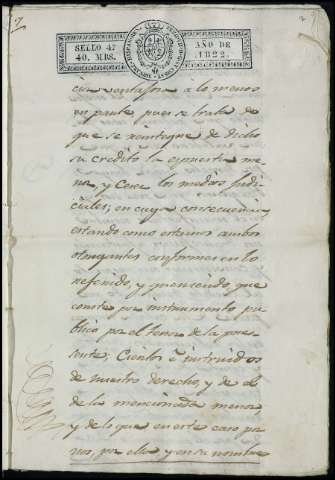 SELLO 4º
40. MRS.
AÑO DE
1822.
cia ventajosa a lo menos
en parte pues se trata de
que se reintegre de dicho
su credito la exponente me-
nor, y Cese los medios Judi-
ciales; en cuya consecuencia
estando como estamos ambos
otorgantes conformes en lo
referido, y queriendo, que
conste por instrumento pu-
blico por el tenor de la pres-
sente; Ciertos e instruidos
de nuestro derecho, y de el
de la mencionada menor
y de lo que en este caso po-
nos, por ella y en su nombre